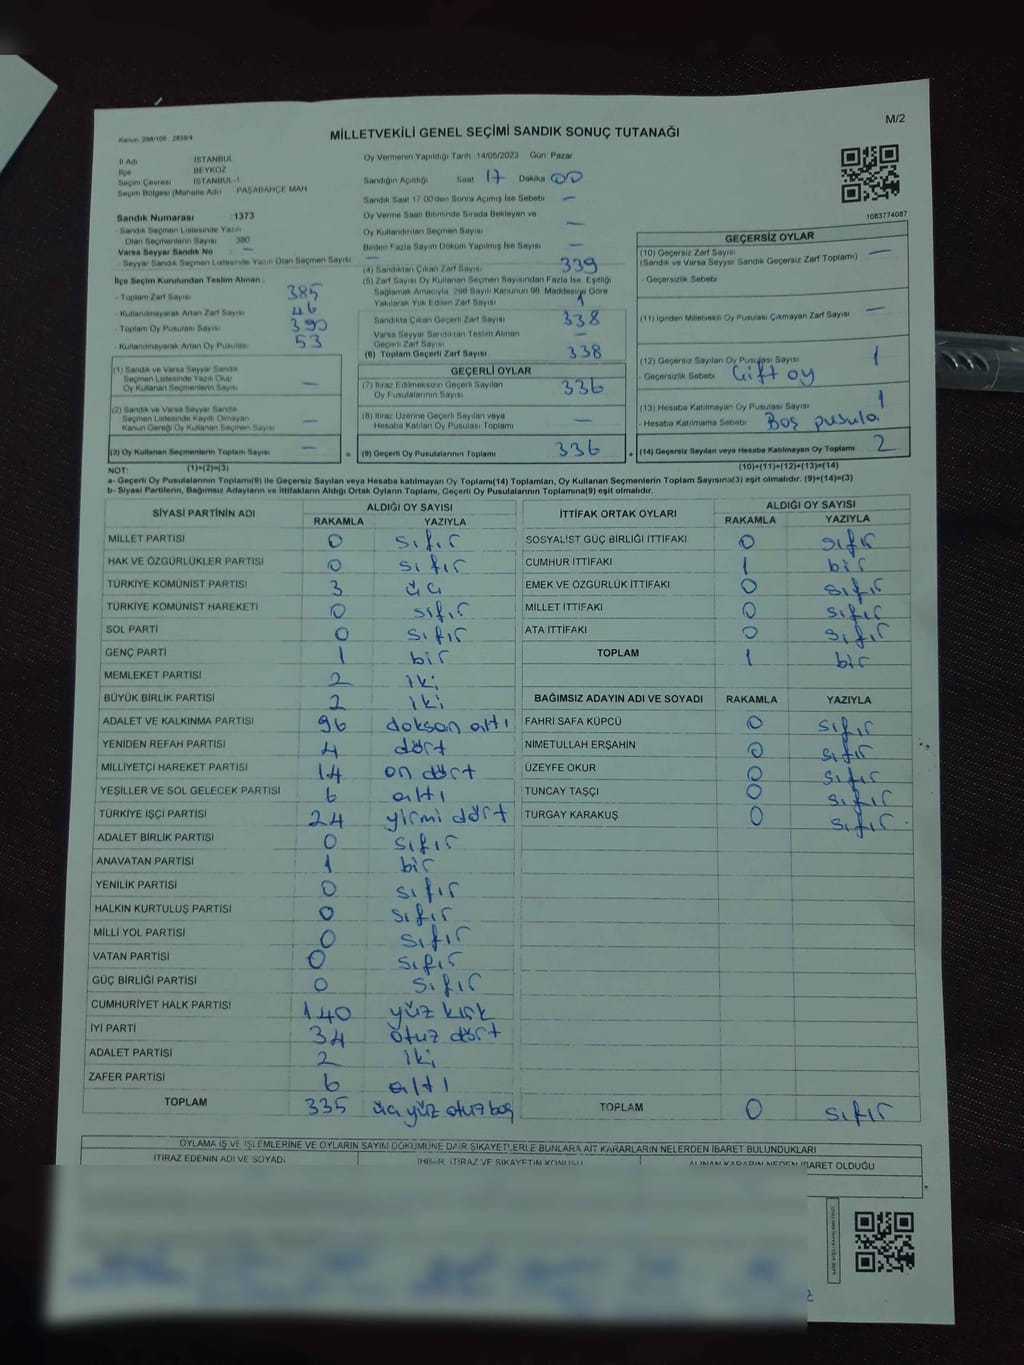 M/2
Kanun 298/105 2839/4
MİLLETVEKİLİ GENEL SEÇİMİ SANDIK SONUÇ TUTANAĞI
İl Adı İSTANBUL
İlçe BEYKOZ
Seçim Çevresi İSTANBUL-1
Seçim Bölgesi (Mahalle Adı) PAŞABAHÇE MAH
Sandık Numarası : 1373
- Sandık Seçmen Listesinde Yazılı
Olan Seçmenlerin Sayısı 380
Varsa Seyyar Sandık No : —
- Seyyar Sandık Seçmen Listesinde Yazılı Olan Seçmen Sayısı —
İlçe Seçim Kurulundan Teslim Alınan :
- Toplam Zarf Sayısı 385
- Kullanılmayarak Artan Zarf Sayısı 46
- Toplam Oy Pusulası Sayısı 390
- Kullanılmayarak Artan Oy Pusulası 53
(1) Sandık ve Varsa Seyyar Sandık
Seçmen Listesinde Yazılı Olup
Oy Kullanan Seçmenlerin Sayısı —
(2) Sandık ve Varsa Seyyar Sandık
Seçmen Listesinde Kayıtlı Olmayan
Kanun Gereği Oy Kullanan Seçmen Sayısı —
(3) Oy Kullanan Seçmenlerin Toplam Sayısı —
Oy Vermenin Yapıldığı Tarih : 14/05/2023 Gün: Pazar
Sandığın Açıldığı Saat 17 Dakika 00
Sandık Saat 17.00'den Sonra Açımış İse Sebebi —
Oy Verme Saati Bitiminde Sırada Bekleyen ve
Oy Kullandırılan Seçmen Sayısı —
Birden Fazla Sayım Döküm Yapılmış İse Sayısı —
(4) Sandıktan Çıkan Zarf Sayısı 339
(5) Zarf Sayısı Oy Kullanan Seçmen Sayısından Fazla İse, Eşitliği
Sağlamak Amacıyla, 298 Sayılı Kanunun 98. Maddesine Göre
Yakılarak Yok Edilen Zarf Sayısı 1
Sandıkta Çıkan Geçerli Zarf Sayısı 338
Varsa Seyyar Sandıktan Teslim Alınan
Geçerli Zarf Sayısı —
(6) Toplam Geçerli Zarf Sayısı 338
GEÇERLİ OYLAR
(7) İtiraz Edilmeksizin Geçerli Sayılan
Oy Pusulalarının Sayısı 336
(8) İtiraz Üzerine Geçerli Sayılan veya
Hesaba Katılan Oy Pusulası Toplamı —
= (9) Geçerli Oy Pusulalarının Toplamı 336
1083774087
GEÇERSİZ OYLAR
(10) Geçersiz Zarf Sayısı —
(Sandık ve Varsa Seyyar Sandık Geçersiz Zarf Toplamı)
- Geçersizlik Sebebi
(11) İçinden Milletvekili Oy Pusulası Çıkmayan Zarf Sayısı —
(12) Geçersiz Sayılan Oy Pusulası Sayısı 1
- Geçersizlik Sebebi Çift oy
(13) Hesaba Katılmayan Oy Pusulası Sayısı 1
- Hesaba Katılmama Sebebi Boş pusula
+ (14) Geçersiz Sayılan veya Hesaba Katılmayan Oy Toplamı 2
NOT: (1)+(2)=(3) (10)+(11)+(12)+(13)=(14)
a- Geçerli Oy Pusulalarının Toplamı(9) ile Geçersiz Sayılan veya Hesaba katılmayan Oy Toplamı(14) Toplamları, Oy Kullanan Seçmenlerin Toplam Sayısına(3) eşit olmalıdır. (9)+(14)=(3)
b- Siyasi Partilerin, Bağımsız Adayların ve İttifakların Aldığı Ortak Oyların Toplamı, Geçerli Oy Pusulalarının Toplamına(9) eşit olmalıdır.
SİYASİ PARTİNİN ADI ALDIĞI OY SAYISI
RAKAMLA YAZIYLA
MİLLET PARTİSİ 0 sıfır
HAK VE ÖZGÜRLÜKLER PARTİSİ 0 sıfır
TÜRKİYE KOMÜNİST PARTİSİ 3 üç
TÜRKİYE KOMÜNİST HAREKETİ 0 sıfır
SOL PARTİ 0 sıfır
GENÇ PARTİ 1 bir
MEMLEKET PARTİSİ 2 iki
BÜYÜK BİRLİK PARTİSİ 2 iki
ADALET VE KALKINMA PARTİSİ 96 doksan altı
YENİDEN REFAH PARTİSİ 4 dört
MİLLİYETÇİ HAREKET PARTİSİ 14 on dört
YEŞİLLER VE SOL GELECEK PARTİSİ 6 altı
TÜRKİYE İŞÇİ PARTİSİ 24 yirmi dört
ADALET BİRLİK PARTİSİ 0 sıfır
ANAVATAN PARTİSİ 1 bir
YENİLİK PARTİSİ 0 sıfır
HALKIN KURTULUŞ PARTİSİ 0 sıfır
MİLLİ YOL PARTİSİ 0 sıfır
VATAN PARTİSİ 0 sıfır
GÜÇ BİRLİĞİ PARTİSİ 0 sıfır
CUMHURİYET HALK PARTİSİ 140 yüz kırk
İYİ PARTİ 34 otuz dört
ADALET PARTİSİ 2 iki
ZAFER PARTİSİ 6 altı
TOPLAM 335 üç yüz otuz beş
İTTİFAK ORTAK OYLARI ALDIĞI OY SAYISI
RAKAMLA YAZIYLA
SOSYALİST GÜÇ BİRLİĞİ İTTİFAKI 0 sıfır
CUMHUR İTTİFAKI 1 bir
EMEK VE ÖZGÜRLÜK İTTİFAKI 0 sıfır
MİLLET İTTİFAKI 0 sıfır
ATA İTTİFAKI 0 sıfır
TOPLAM 1 bir
BAĞIMSIZ ADAYIN ADI VE SOYADI RAKAMLA YAZIYLA
FAHRİ SAFA KÜPCÜ 0 sıfır
NİMETULLAH ERŞAHİN 0 sıfır
ÜZEYFE OKUR 0 sıfır
TUNCAY TAŞÇI 0 sıfır
TURGAY KARAKUŞ 0 sıfır
TOPLAM 0 sıfır
OYLAMA İŞ VE İŞLEMLERİNE VE OYLARIN SAYIM DÖKÜMÜNE DAİR ŞİKAYETLERLE BUNLARA AİT KARARLARIN NELERDEN İBARET BULUNDUKLARI
İTİRAZ EDENİN ADI VE SOYADI İHBAR, İTİRAZ VE ŞİKAYETİN KONUSU ALINAN KARARIN NEDEN İBARET OLDUĞU